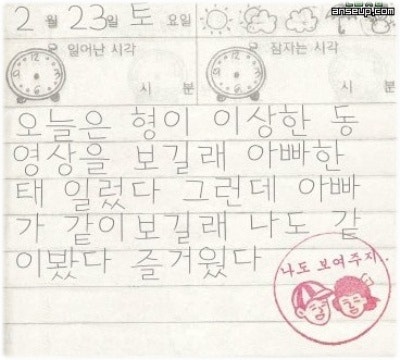 anseup.com
2 월 23일 토 요일
일어난 시각
잠자는 시각
시 분
시 분
오늘은 형이 이상한 동
영상을 보길래 아빠한
태 일렀다 그런데 아빠
가 같이보길래 나도 같
이봤다 즐거웠다
나도 보여주지.